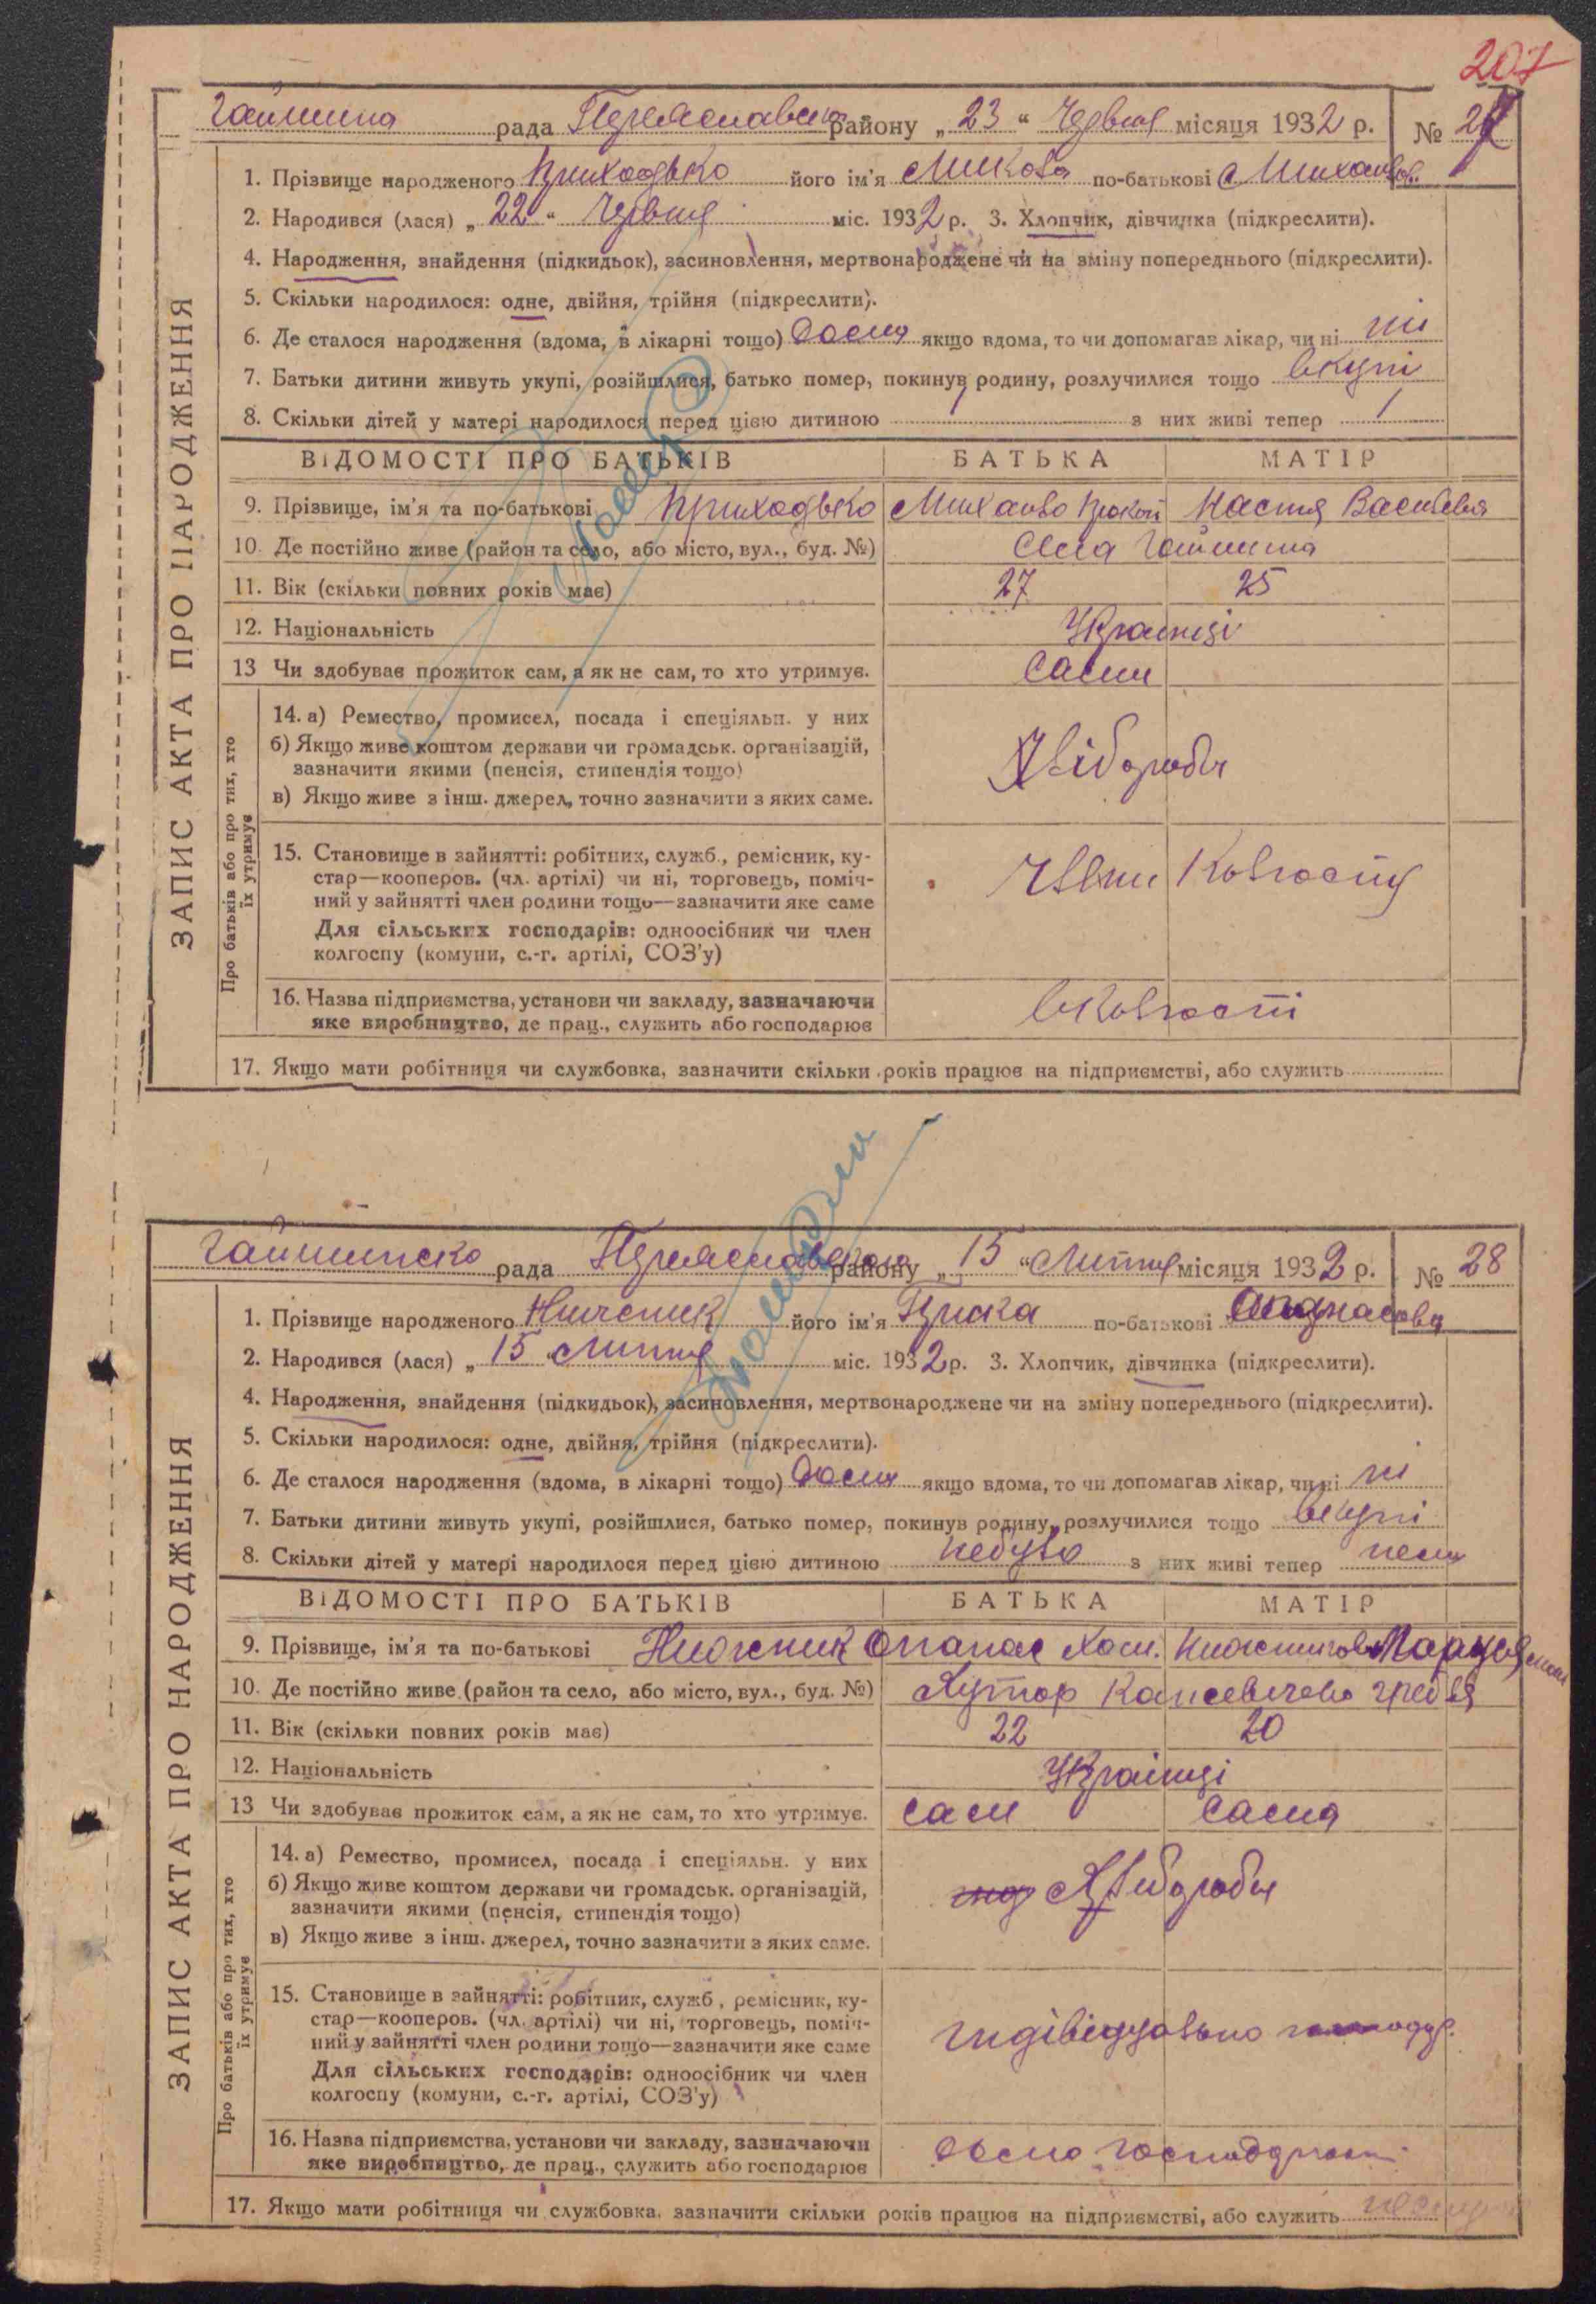 207
Гайшина рада Переяславськ району „ 23 “ Червня місяця 1932 р. № 27
ЗАПИС АКТА ПРО НАРОДЖЕННЯ
1. Прізвище народженого Приходько його ім'я Микола по-батькові Михайлов.
2. Народився (лася) „ 22 “ Червня міс. 1932 р. 3. Хлопчик, дівчинка (підкреслити).
4. Народження, знайдення (підкидьок), засиновлення, мертвонароджене чи на зміну попереднього (підкреслити).
5. Скільки народилося: одне, двійня, трійня (підкреслити).
6. Де сталося народження (вдома, в лікарні тощо) Дома якщо вдома, то чи допомагав лікар, чи ні ні
7. Батьки дитини живуть укупі, розійшлися, батько помер, покинув родину, розлучилися тощо вкупі
8. Скільки дітей у матері народилося перед цією дитиною 1 з них живі тепер 1
ВІДОМОСТІ ПРО БАТЬКІВ БАТЬКА МАТІР
9. Прізвище, ім'я та по-батькові Приходько Михайло Прокоп Настя Василевна
10. Де постійно живе (район та село, або місто, вул., буд. №) Села Гайшина
11. Вік (скільки повних років має) 27 25
12. Національність Українці
13 Чи здобуває прожиток сам, а як не сам, то хто утримує. Сами
Про батьків або про тих, хто їх утримує
14. а) Ремество, промисел, посада і спеціяльн. у них
б) Якщо живе коштом держави чи громадськ. організацій,
зазначити якими (пенсія, стипендія тощо)
в) Якщо живе з інш. джерел, точно зазначити з яких саме.
Хлібороби
15. Становище в зайнятті: робітник, служб., ремісник, ку-
стар—кооперов. (чл. артілі) чи ні, торговець, поміч-
ний у зайнятті член родини тощо—зазначити яке саме
Для сільських господарів: одноосібник чи член
колгоспу (комуни, с.-г. артілі, СОЗ'у)
Члени Колгоспу
16. Назва підприємства, установи чи закладу, зазначаючи
яке виробництво, де прац., служить або господарює
вколгоспі
17. Якщо мати робітниця чи службовка, зазначити скільки років працює на підприємстві, або служить
Гайшинсько рада Переяславського району „ 15 “ Липня місяця 1932 р. № 28
ЗАПИС АКТА ПРО НАРОДЖЕННЯ
1. Прізвище народженого його ім'я Приска по-батькові Опанасовн
2. Народився (лася) „ 15 “ Липня міс. 1932 р. 3. Хлопчик, дівчинка (підкреслити).
4. Народження, знайдення (підкидьок), засиновлення, мертвонароджене чи на зміну попереднього (підкреслити).
5. Скільки народилося: одне, двійня, трійня (підкреслити).
6. Де сталося народження (вдома, в лікарні тощо) Дома якщо вдома, то чи допомагав лікар, чи ні ні
7. Батьки дитини живуть укупі, розійшлися, батько помер, покинув родину, розлучилися тощо вкупі
8. Скільки дітей у матері народилося перед цією дитиною небуло з них живі тепер нема
ВІДОМОСТІ ПРО БАТЬКІВ БАТЬКА МАТІР
9. Прізвище, ім'я та по-батькові Нижник Опанас Хом.
10. Де постійно живе (район та село, або місто, вул., буд. №) Хутор
11. Вік (скільки повних років має) 22 20
12. Національність Українці
13 Чи здобуває прожиток сам, а як не сам, то хто утримує. Сам Сама
Про батьків або про тих, хто їх утримує
14. а) Ремество, промисел, посада і спеціяльн. у них
б) Якщо живе коштом держави чи громадськ. організацій,
зазначити якими (пенсія, стипендія тощо)
в) Якщо живе з інш. джерел, точно зазначити з яких саме.
Хлібороби
15. Становище в зайнятті: робітник, служб., ремісник, ку-
стар—кооперов. (чл. артілі) чи ні, торговець, поміч-
ний у зайнятті член родини тощо—зазначити яке саме
Для сільських господарів: одноосібник чи член
колгоспу (комуни, с.-г. артілі, СОЗ'у)
індівідуально
16. Назва підприємства, установи чи закладу, зазначаючи
яке виробництво, де прац., служить або господарює
17. Якщо мати робітниця чи службовка, зазначити скільки років працює на підприємстві, або служить